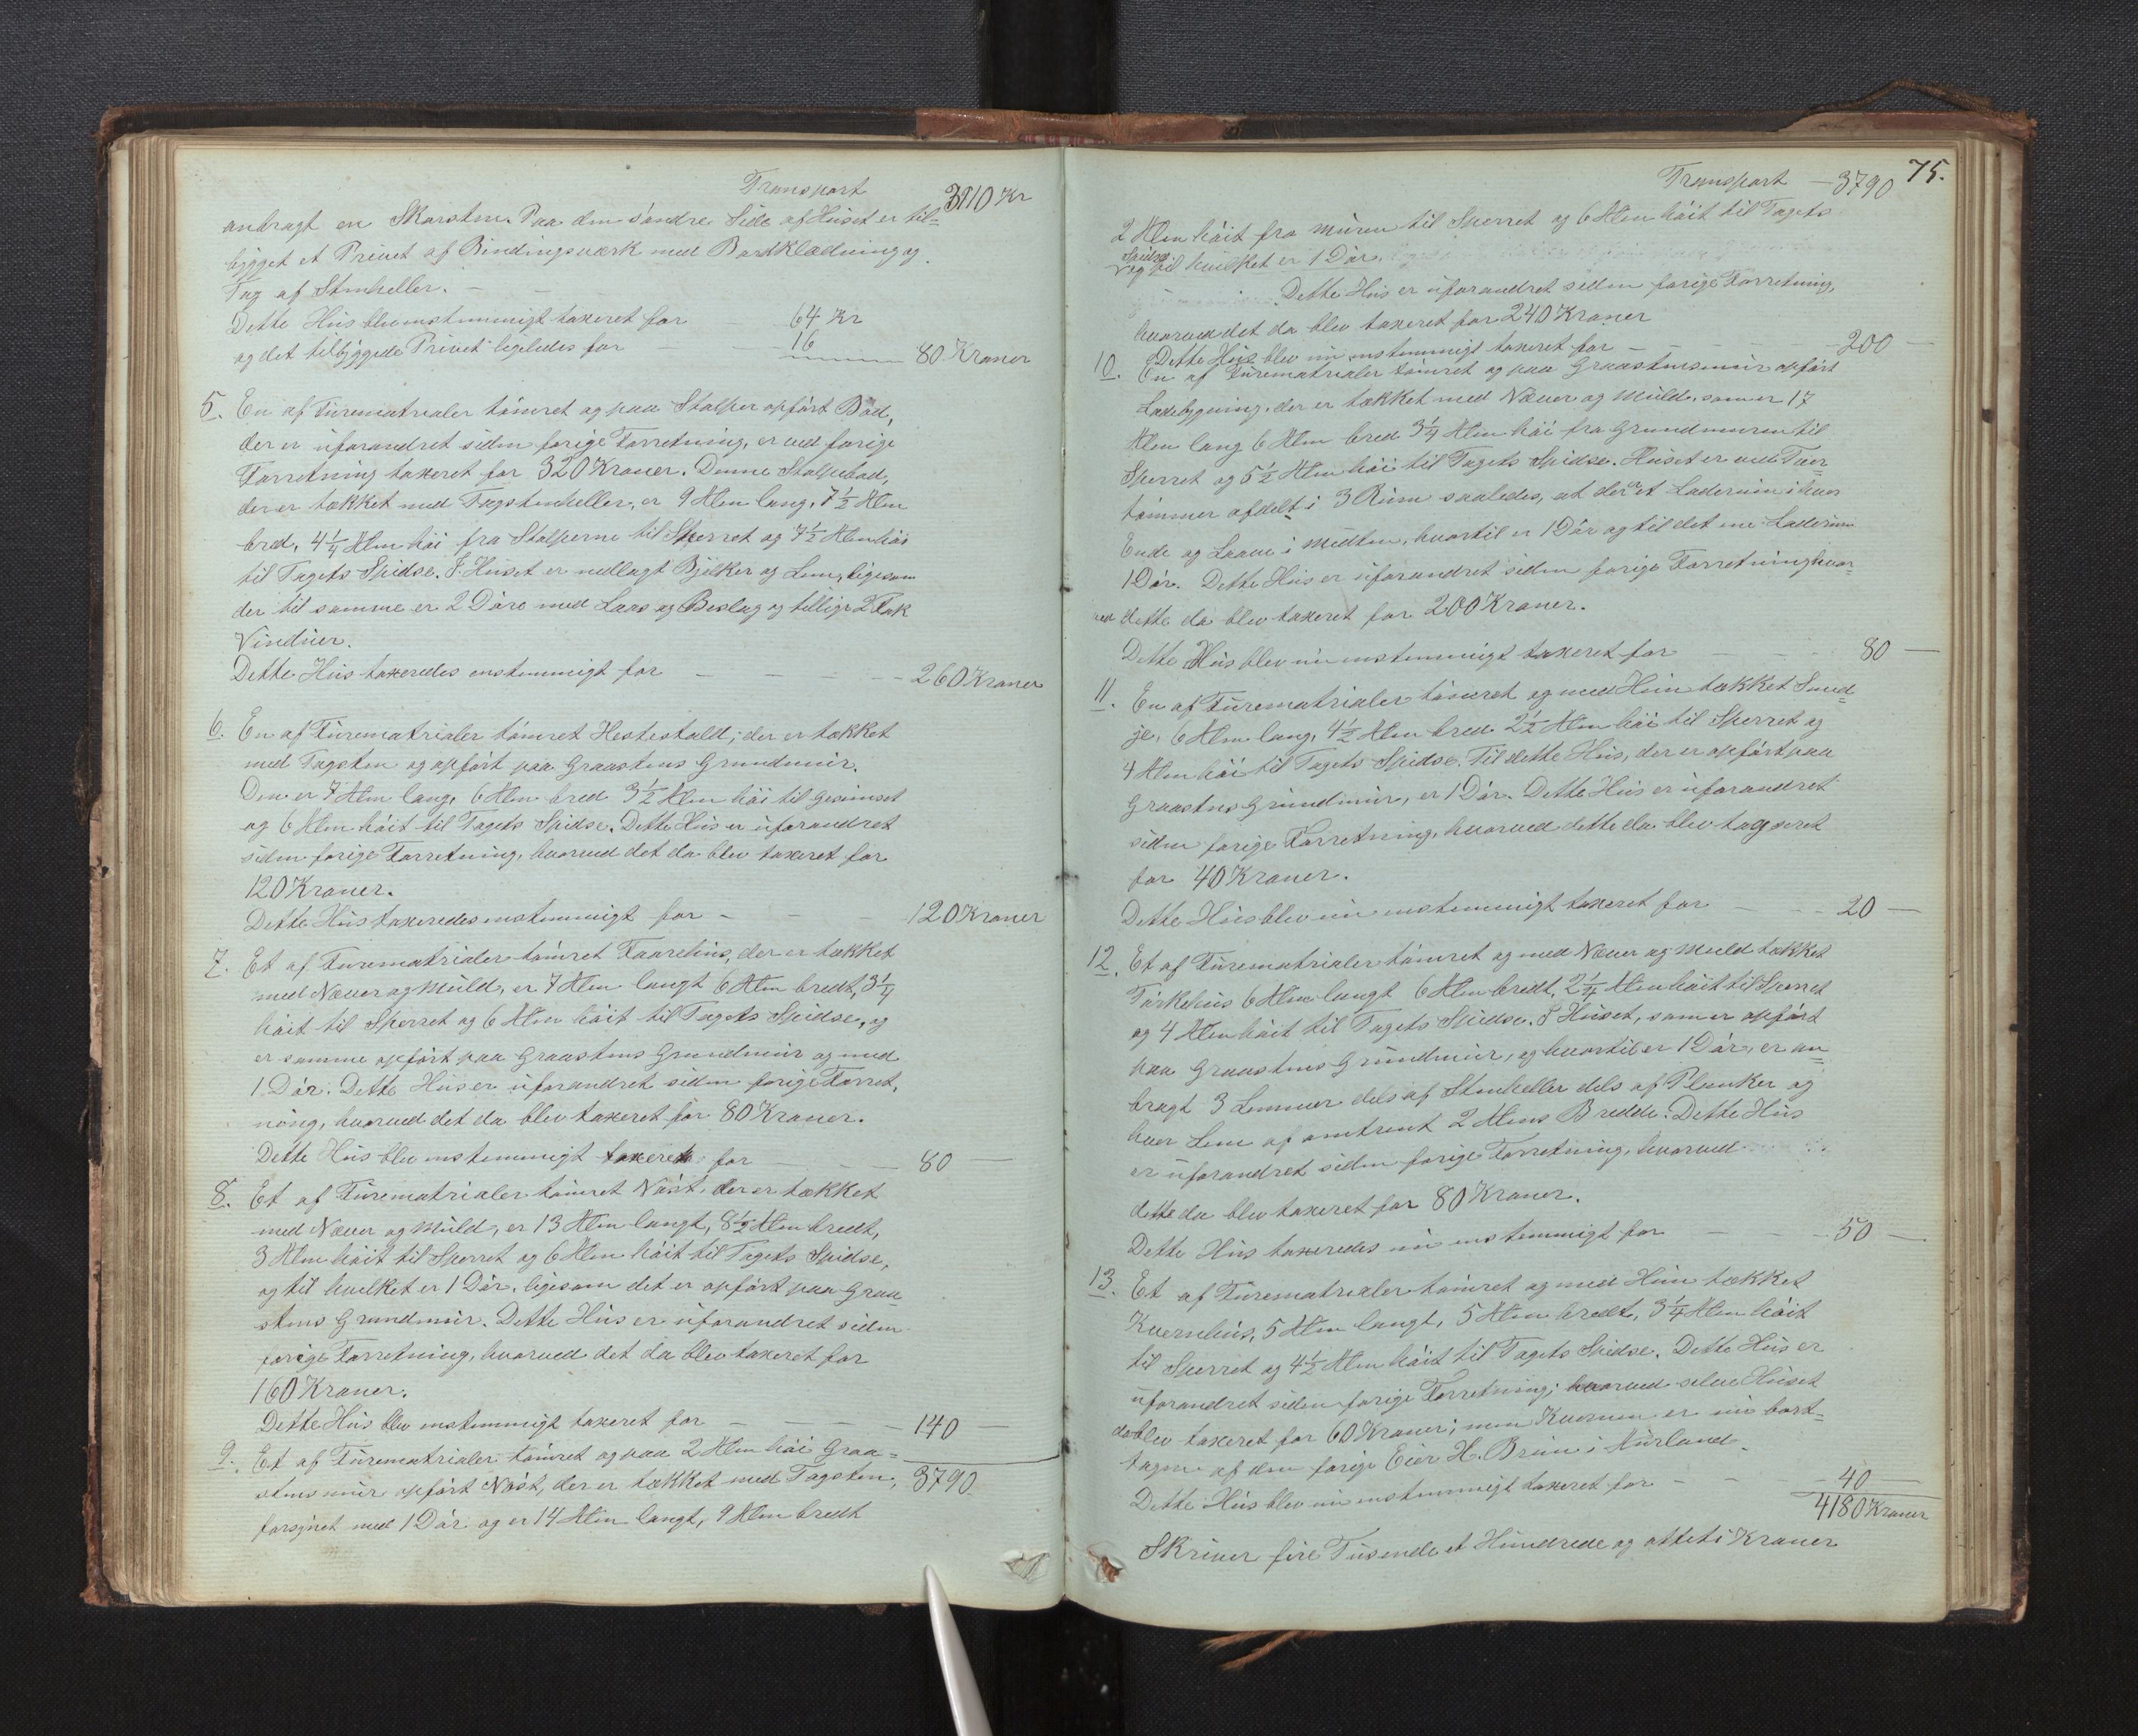 Transport 3110 Kr
anbragt en Skorsten. Paa den søndre Side af Huset er til=
bygget et Privet af Bindingsværk med Bordklædning og
Tag af Stenheller. –
Dette Hus blev enstemmigt taxeret for 64 Kr
og det tilbyggede Privet ligeledes for – – 16 80 Kroner
5. En af Furematrialer tømret og paa Stolper opført Bod,
der er uforandret siden forige Forretning, er ved forige
Forretning taxeret for 320 Kroner. Denne Stolpebod,
der er tækket med Tagstenheller, er 9 Alen lang, 7½ Alen
bred, 4¼ Alen høi fra Stolperne til Sperret og 7½ Alen høi
til Tagets Spidse. I Huset er nedlagt Bjelker og Lem, ligesom
der til samme er 2 Døre med Laas og Beslag og tillige 2 Fak
Vinduer.
Dette Hus taxeredes enstemmigt for – – – – 260 Kroner
6. En af Furematrialer tømret Hestestald, der er tækket
med Tagsten og opført paa Graastens Grundmur.
Den er 7 Alen lang, 6 Alen bred 3½ Alen høi til Gesimset
og 6 Alen høit til Tagets Spidse. Dette Hus er uforandret
siden forige Forretning, hvorved det da blev taxeret for
120 Kroner.
Dette Hus taxeredes enstemmigt for – – – 120 Kroner
7. Et af Furematrialer tømret Faarehus, der er tækket
med Næver og Muld, er 7 Alen langt 6 Alen bredt, 3¼
høit til Sperret og 6 Alen høit til Tagets Spidse, og
er samme opført paa Graastens Grundmur og med
1 Dør. Dette Hus er uforandret siden forige Forret,
ning, hvorved det da blev taxeret for 80 Kroner.
Dette Hus blev enstemmigt taxeret for – – – 80 –
8. Et af Furematrialer tømret Nøst, der er tækket
med Næver og Muld, er 13 Alen langt, 8½ Alen bredt,
3 Alen høit til Sperret og 6 Alen høit til Tagets Spidse,
og til hvilket er 1 Dør, ligesom det er opført paa Graa=
stens Grundmur. Dette Hus er uforandret siden
forige Forretning, hvorved det da blev taxeret for
160 Kroner.
Dette Hus blev enstemmigt taxeret for – – – 140 –
9. Et af Furematrialer tømret og paa 2 Alen høi Graa=
stensmur opført Nøst, der er tækket med Tagsten, 3790
forsynet med 1 Dør og er 14 Alen langt, 9 Alen bredt
75.
Transport – 3790
2 Alen høit fra Muren til Sperret og 6 Alen høit til Tagets
Spidse
og til hvilket er 1 Dør.
Dette Hus er uforandret siden forige Forretning,
hvorved det da blev taxeret for 240 Kroner
Dette Hus blev nu enstemmigt taxeret for – – – 200 –
10. En af Furematrialer tømret og paa Graastensmur opført
Ladebygning, der er tækket med Næver og Muld, som er 17
Alen lang 6 Alen bred 3¼ Alen høi fra Grundmuren til
Sperret og 5½ Alen høi til Tagets Spidse. Huset er ved Tver
tømmer afdelt i 3 Rum saaledes, at der er et Laderum i hver
Ende og Laave i Midten, hvortil er 1 Dør og til det ene Laderum
1 Dør. Dette Hus er uforandret siden forige Forretning hvor=
ved dette da blev taxeret for 200 Kroner.
Dette Hus blev nu enstemmigt taxeret for – – 80 –
11. En af Furematrialer tømret og med Heim tækket Smed=
je, 6 Alen lang, 4½ Alen bred 2½ Alen høi til Sperret og
4 Alen høi til Tagets Spidse. Til dette Hus, der er opført paa
Graastens Grundmur, er 1 Dør. Dette Hus er uforandret
siden forige Forretning, hvorved dette da blev tagseret
for 40 Kroner.
Dette Hus blev nu enstemmigt taxeret for – – 20 –
12. Et af Furematrialer tømret og med Næver og Muld tækket
Tørkehus 6 Alen langt 6 Alen bredt, 2¼ Alen høit til Sperret
og 4 Alen høit til Tagets Spidse. I Huset, som er opført
paa Graastens Grundmur, og hvortil er 1 Dør, er an=
bragt 3 Lemmer dels af Stenheller dels af Planker og
hver Lem af omtrent 2 Alens Bredde. Dette Hus
er uforandret siden forige Forretning, hvorved
dette da blev taxeret for 80 Kroner.
Dette Hus taxeredes nu enstemmigt for – – – 50 –
13. Et af Furematrialer tømret og med Heim tækket
Kvernhus, 5 Alen langt, 5 Alen bredt, 3¼ Alen høit
til Sperret og 4½ Alen høit til Tagets Spidse. Dette Hus er
uforandret siden forige Forretning; hvorved selve Huset
da blev taxeret for 60 Kroner; men Kvernen er nu bort=
tagen af den forige Eier H. Brun i Aurland.
Dette Hus blev nu enstemmigt taxeret for – – – 40 –
4180 Kroner
Skriver fire Tusende et Hundrede og otteti Kroner